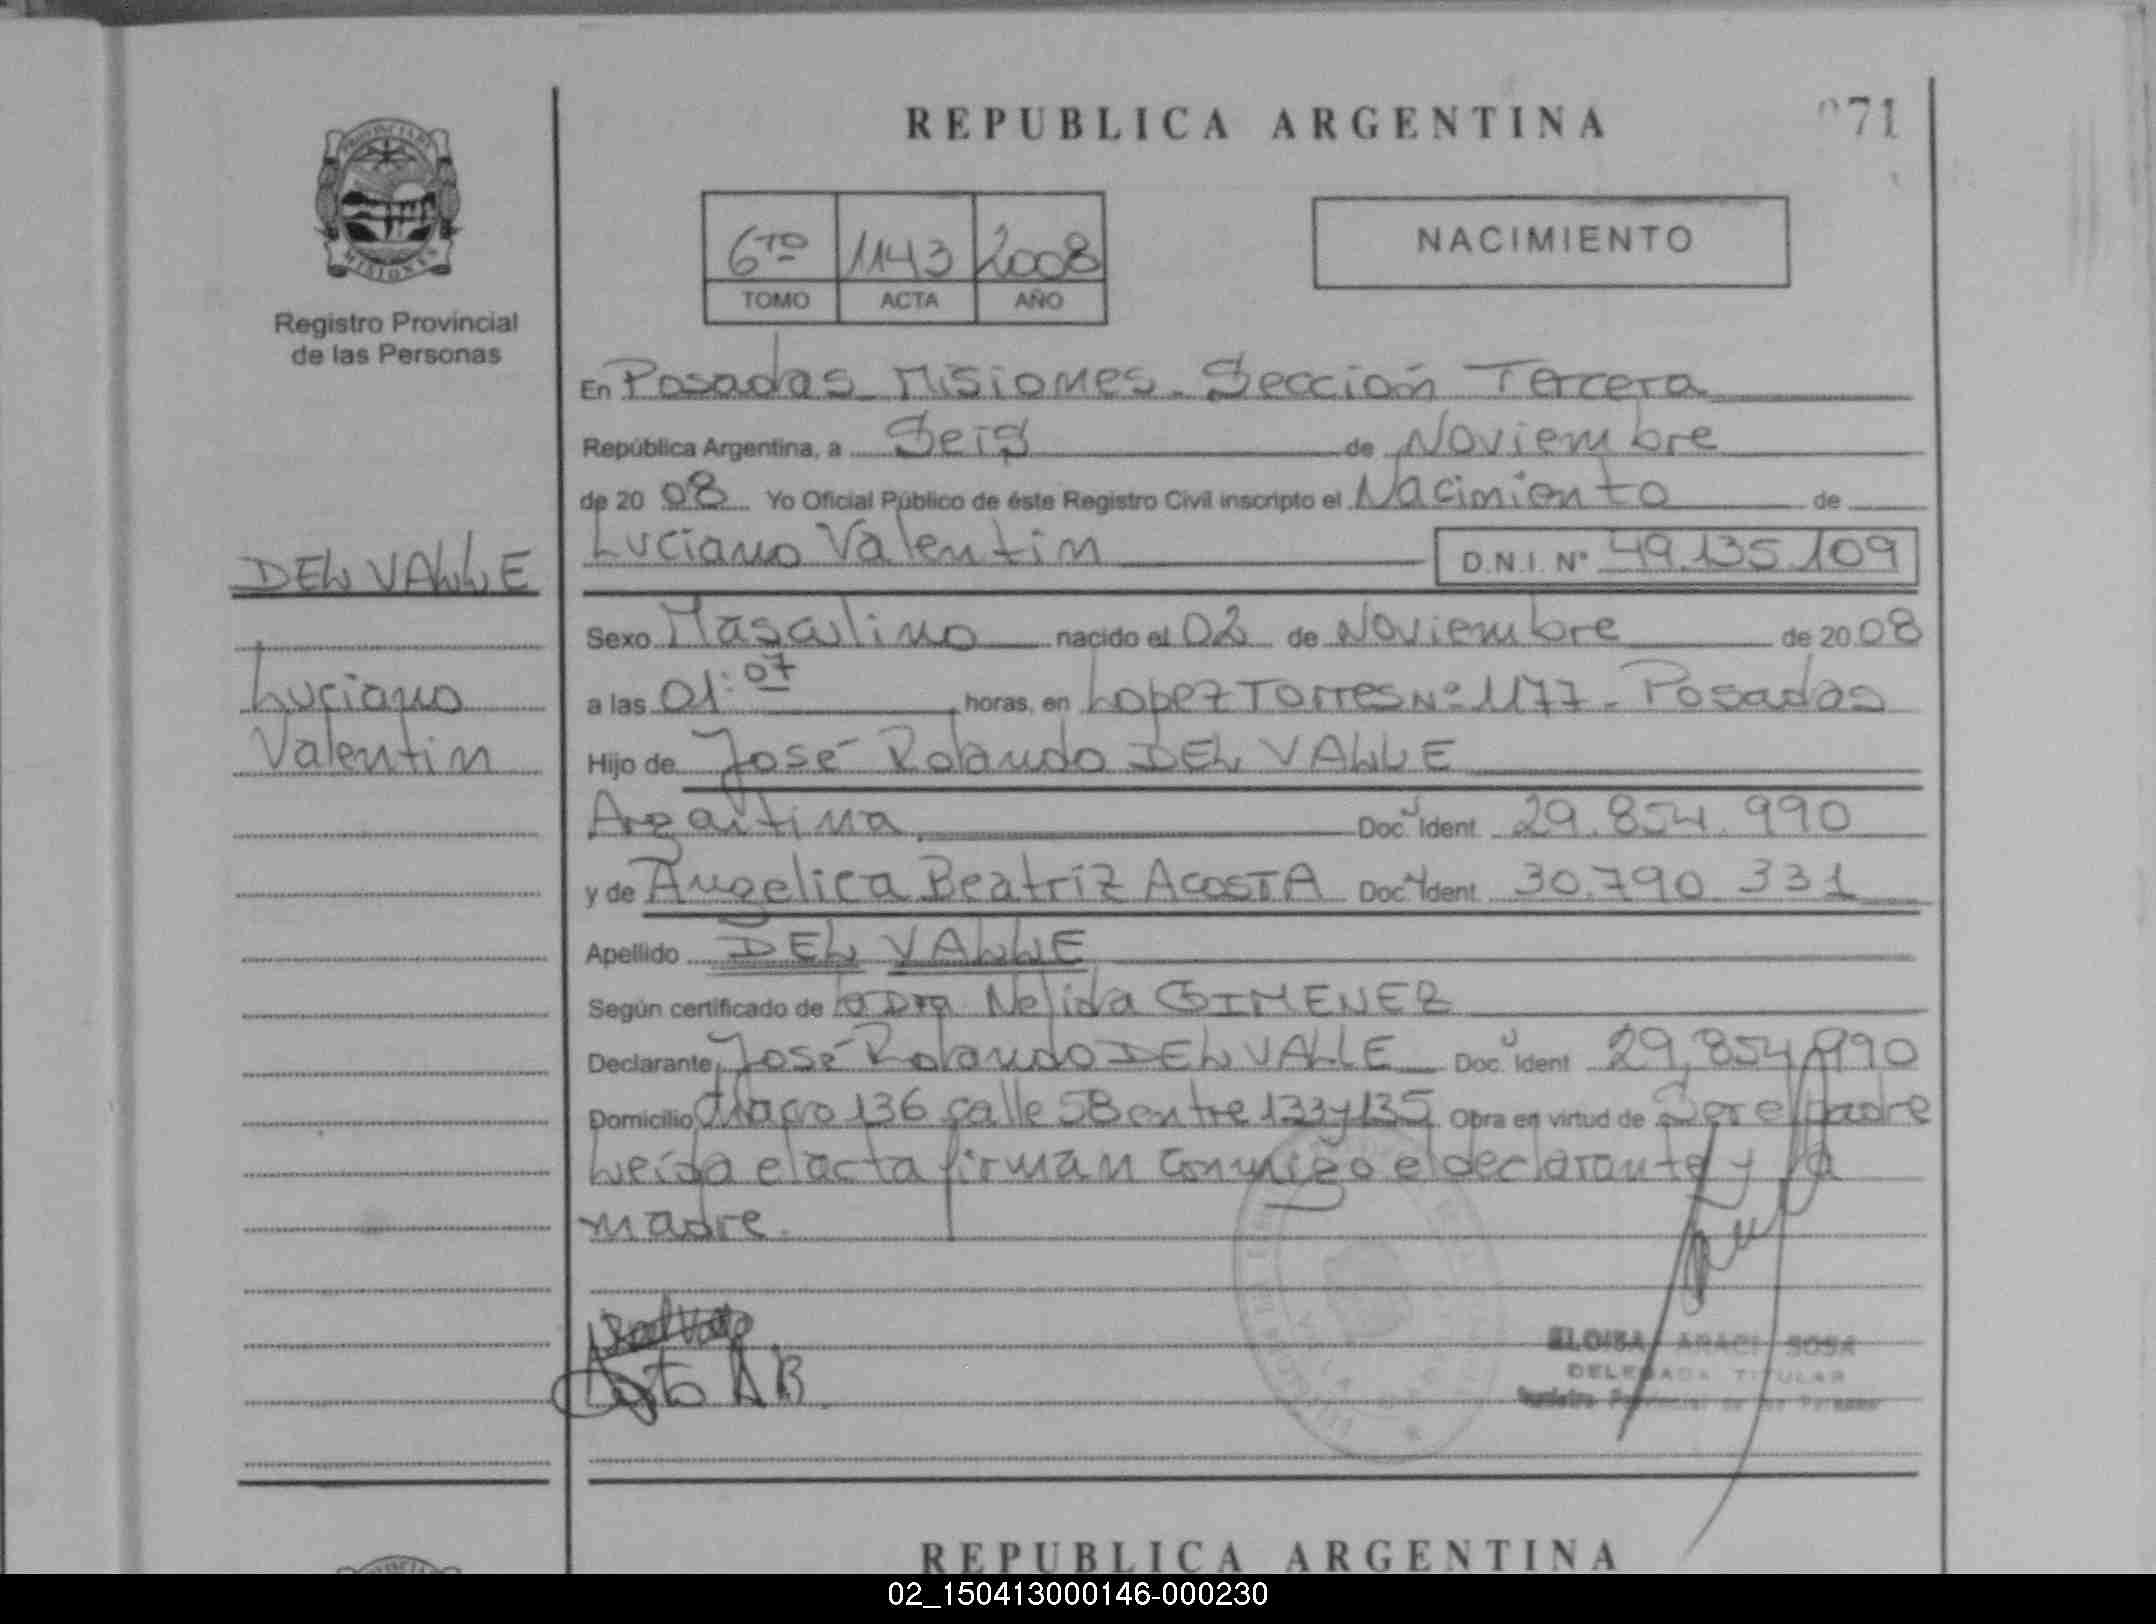 REPUBLICA ARGENTINA
071
PROVINCIA DE
MISIONES
Registro Provincial
de las Personas
6TO 1143 2008
TOMO ACTA AÑO
NACIMIENTO
En Posadas Misiones. Sección Tercera
República Argentina, a Seis de Noviembre
de 2008 Yo Oficial Público de éste Registro Civil inscripto el Nacimiento de
Luciano Valentin D.N.I. Nº 49.135.109
DEL VALLE
Luciano
Valentin
Sexo Masculino nacido el 02 de Noviembre de 2008
a las 01:07 horas, en Lopez Torres Nº 1177 - Posadas
Hijo de José Rolando DEL VALLE
Argentina Doc. Ident. 29.854.990
y de Angelica Beatriz ACOSTA Doc. Ident. 30.790.331
Apellido DEL VALLE
Según certificado de la Dra Nelida GIMENEZ
Declarante José Rolando DEL VALLE Doc. Ident. 29.854.990
Domicilio 136 calle 58 entre 133 y 135 Obra en virtud de Ser el padre
Leída el acta firman conmigo el declarante y la
madre.
A B
ELOISA ARACI SOSA
DELEGADA TITULAR
Registro Provincial de las Personas
REPUBLICA ARGENTINA
02_150413000146-000230